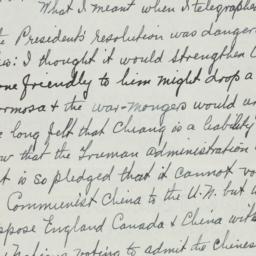 What I meant when I telegraphed
the President's resolution was danger
is: I thought it would strengthen C
one friendly to him might drop a
ormosa & the war-mongers would
e long felt that Chiang is a liability
ow that the Truman administration
t is so pledged that it cannot vo
Communist China to the U.N. but
ppose England Canada & China with
nations voting to admit the Chinese